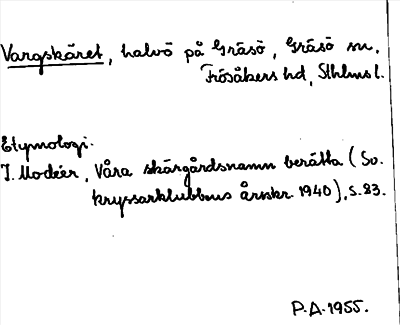 Vargskäret, halvö på Gräsö, Gräsö sn.
Frösåkers hd, Sthlms l.
Etymologi.
I. Modéer, Våra skärgårdsnamn berätta (Sv.
kryssarklubbens årsskr. 1940), s. 83.
P.A. 1955.